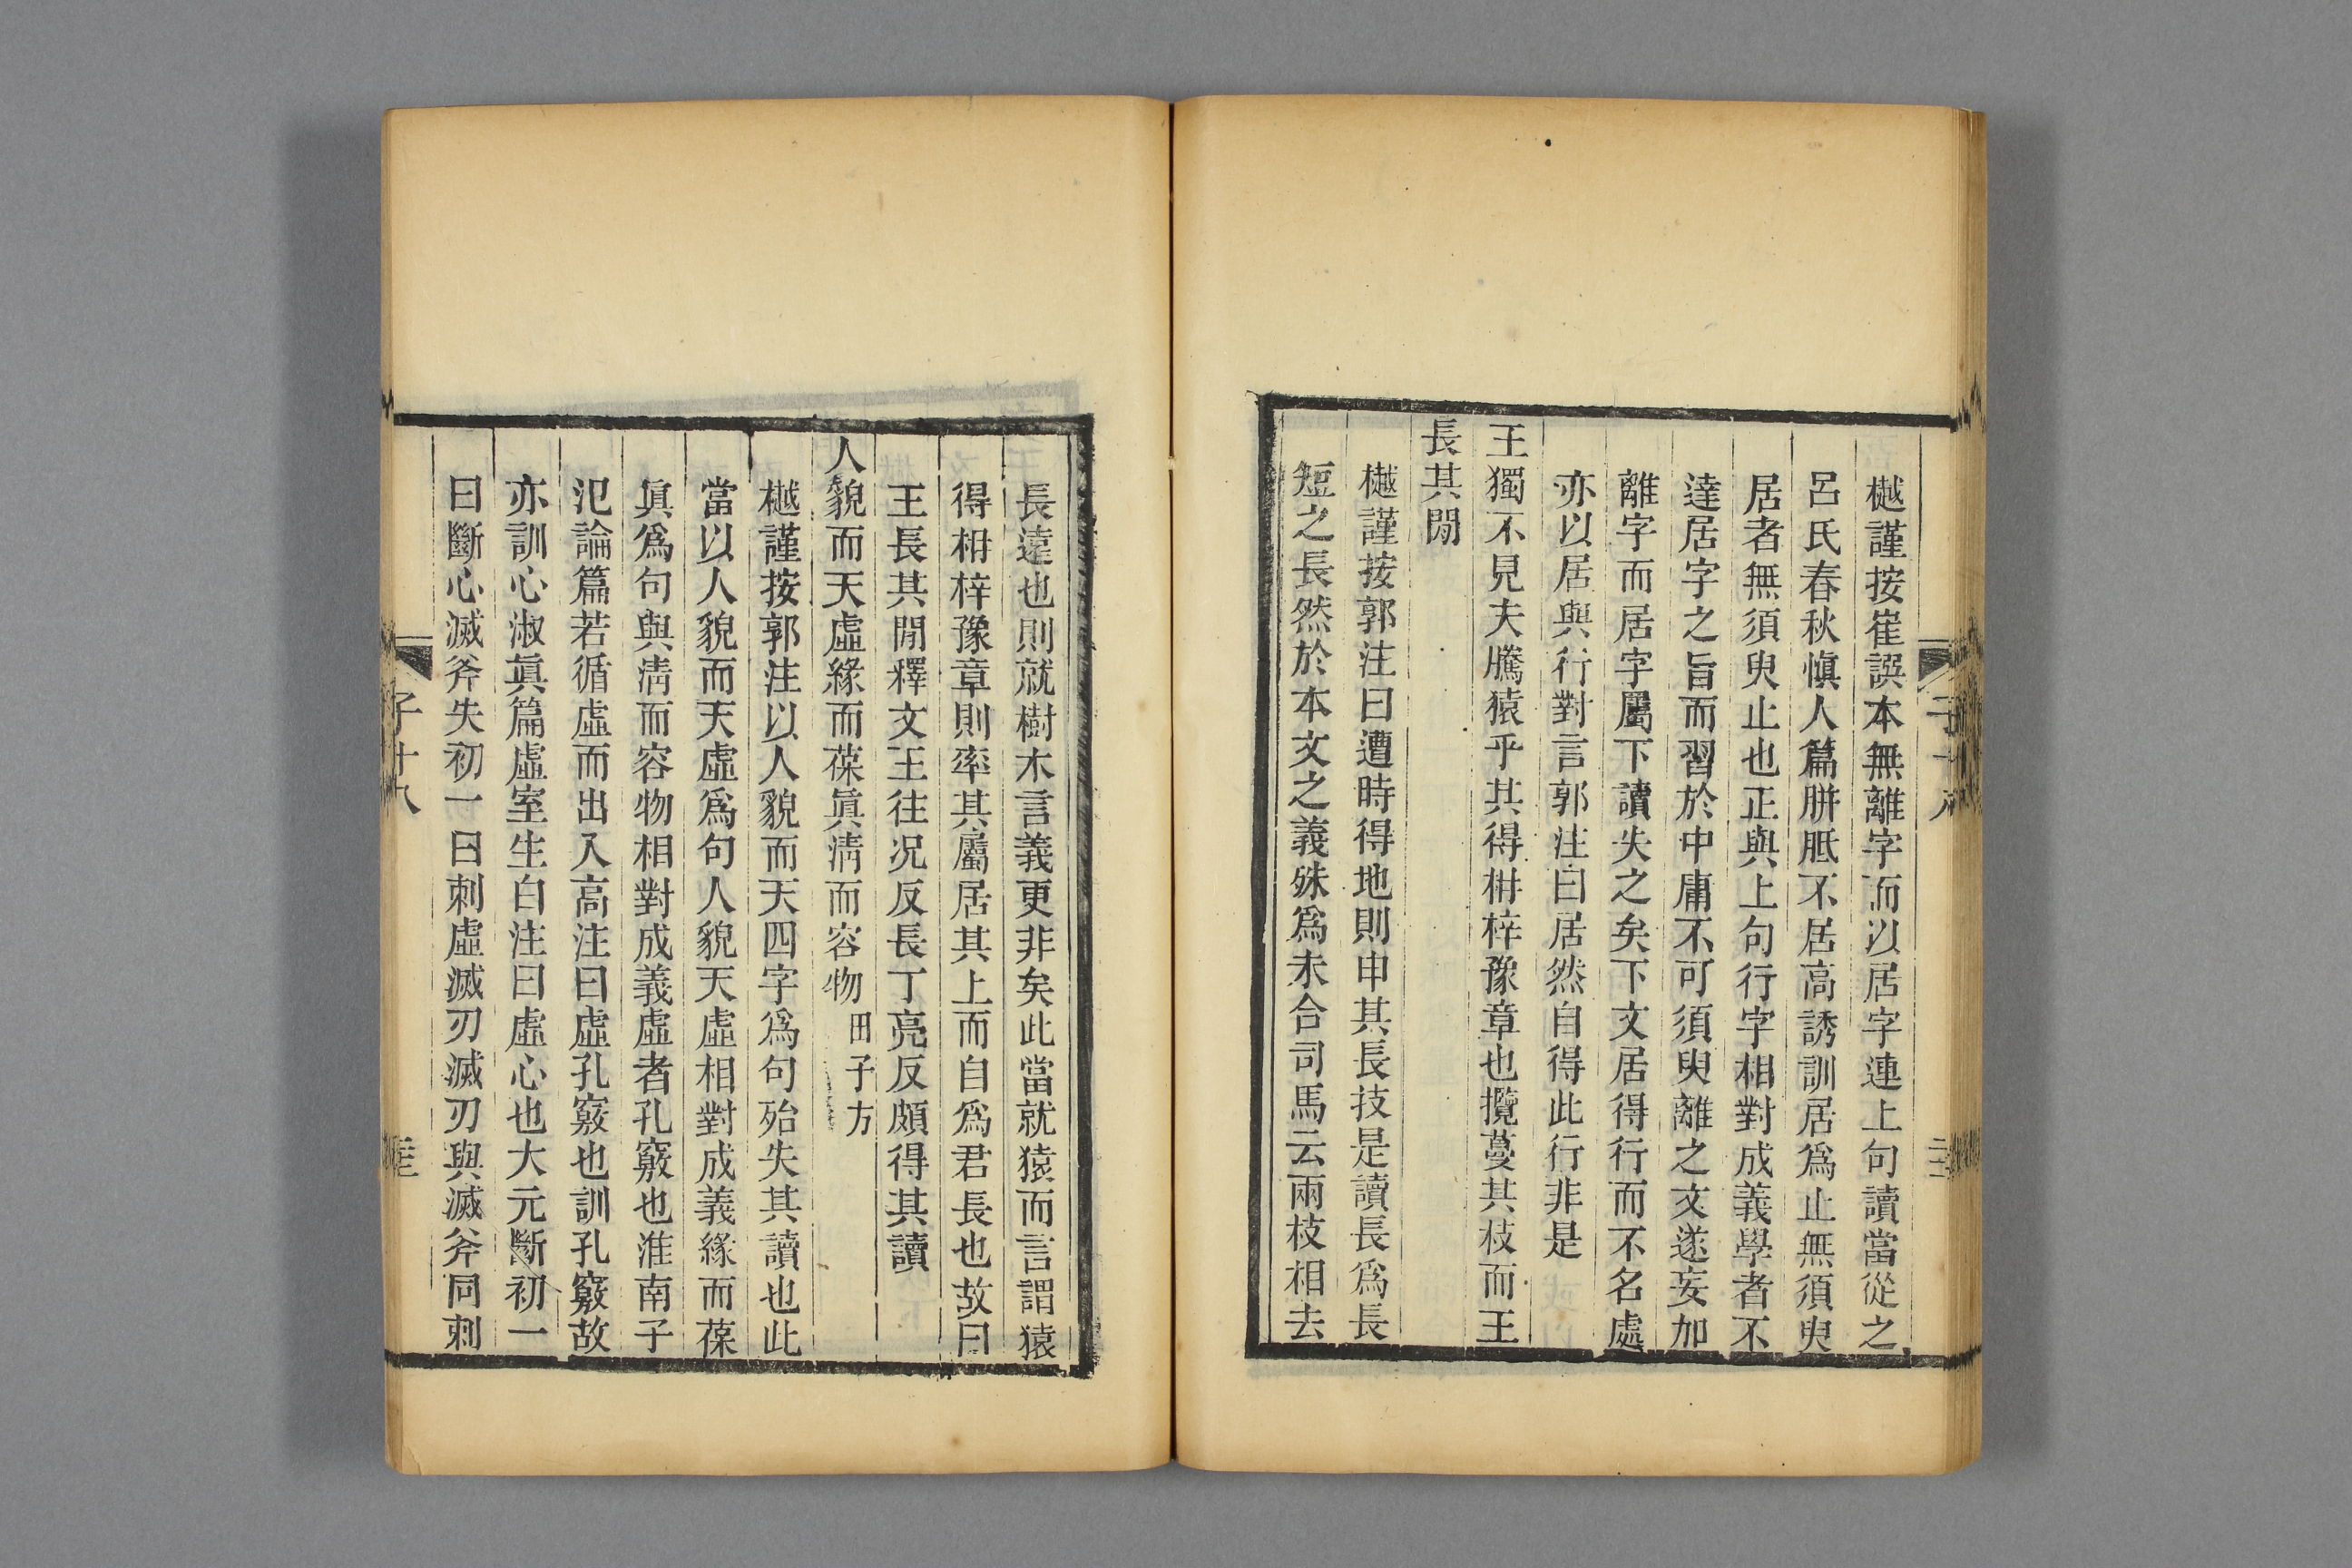 樾謹按崔譔本無離字而以居字連上句讀當從之
呂氏春秋愼人篇胼胝不居高誘訓居爲止無須臾
居者無須臾止也正與上句行字相對成義學者不
達居字之旨而習於中庸不可須臾離之文遂妄加
離字而居字屬下讀失之矣下文居得行而不名處
亦以居與行對言郭注曰居然自得此行非是
王獨不見夫騰猿乎其得枏梓豫章也攬蔓其枝而王
長其閒
樾謹按郭注曰遭時得地則申其長技是讀長爲長
短之長然於本文之義殊爲未合司馬云兩枝相去
長遠也則就樹木言義更非矣此當就猿而言謂猿
得枏梓豫章則率其屬居其上而自爲君長也故曰
王長其閒釋文王往况反長丁亮反頗得其讀
人貌而天虛緣而葆眞淸而容物 田子方
樾謹按郭注以人貌而天四字爲句殆失其讀也此
當以人貌而天虛爲句人貌天虛相對成義緣而葆
眞爲句與淸而容物相對成義虛者孔竅也淮南子
氾論篇若循虛而出入高注曰虛孔竅也訓孔竅故
亦訓心淑眞篇虛室生白注曰虛心也大元斷初一
曰斷心滅斧失初一曰刺虛滅刃滅刃與滅斧同刺
子十八